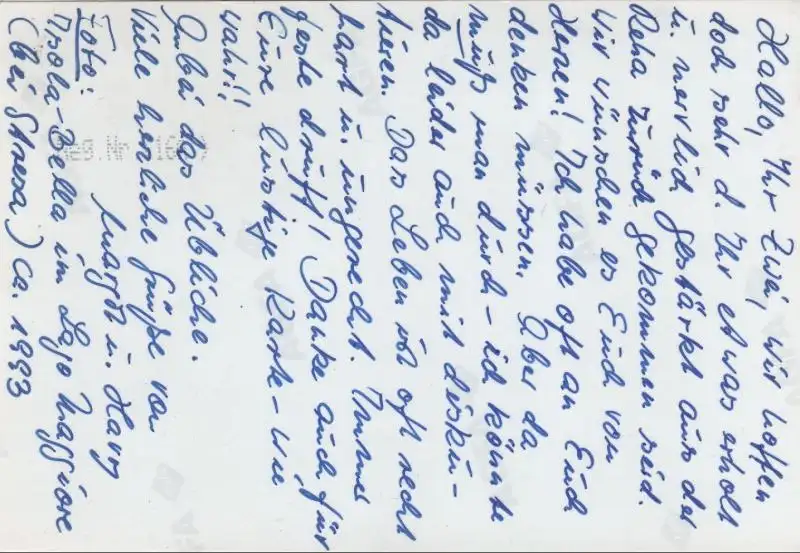 Hallo, Ihr Zwei, wir hoffen
doch sehr d. Ihr etwas erholt
u. nervlich gestärkt aus der
Reha zurück gekommen seid.
Wir wünschen es Euch von
Herzen! Ich habe oft an Euch
denken müssen. Aber da
muß man durch - ich könnte
da leider auch mit disku-
tieren. Das Leben ist oft recht
hart u. ungerecht. Immer
feste druff! Danke auch für
Eure lustige Karte - wie
wahr!!
Anbei das Übliche.
Viele herzliche Grüße von
Margit u. Harry
Foto:
Isola-Bella im Lago Maggiore
(bei Stresa) ca. 1993
Neg.Nr.
AGFA